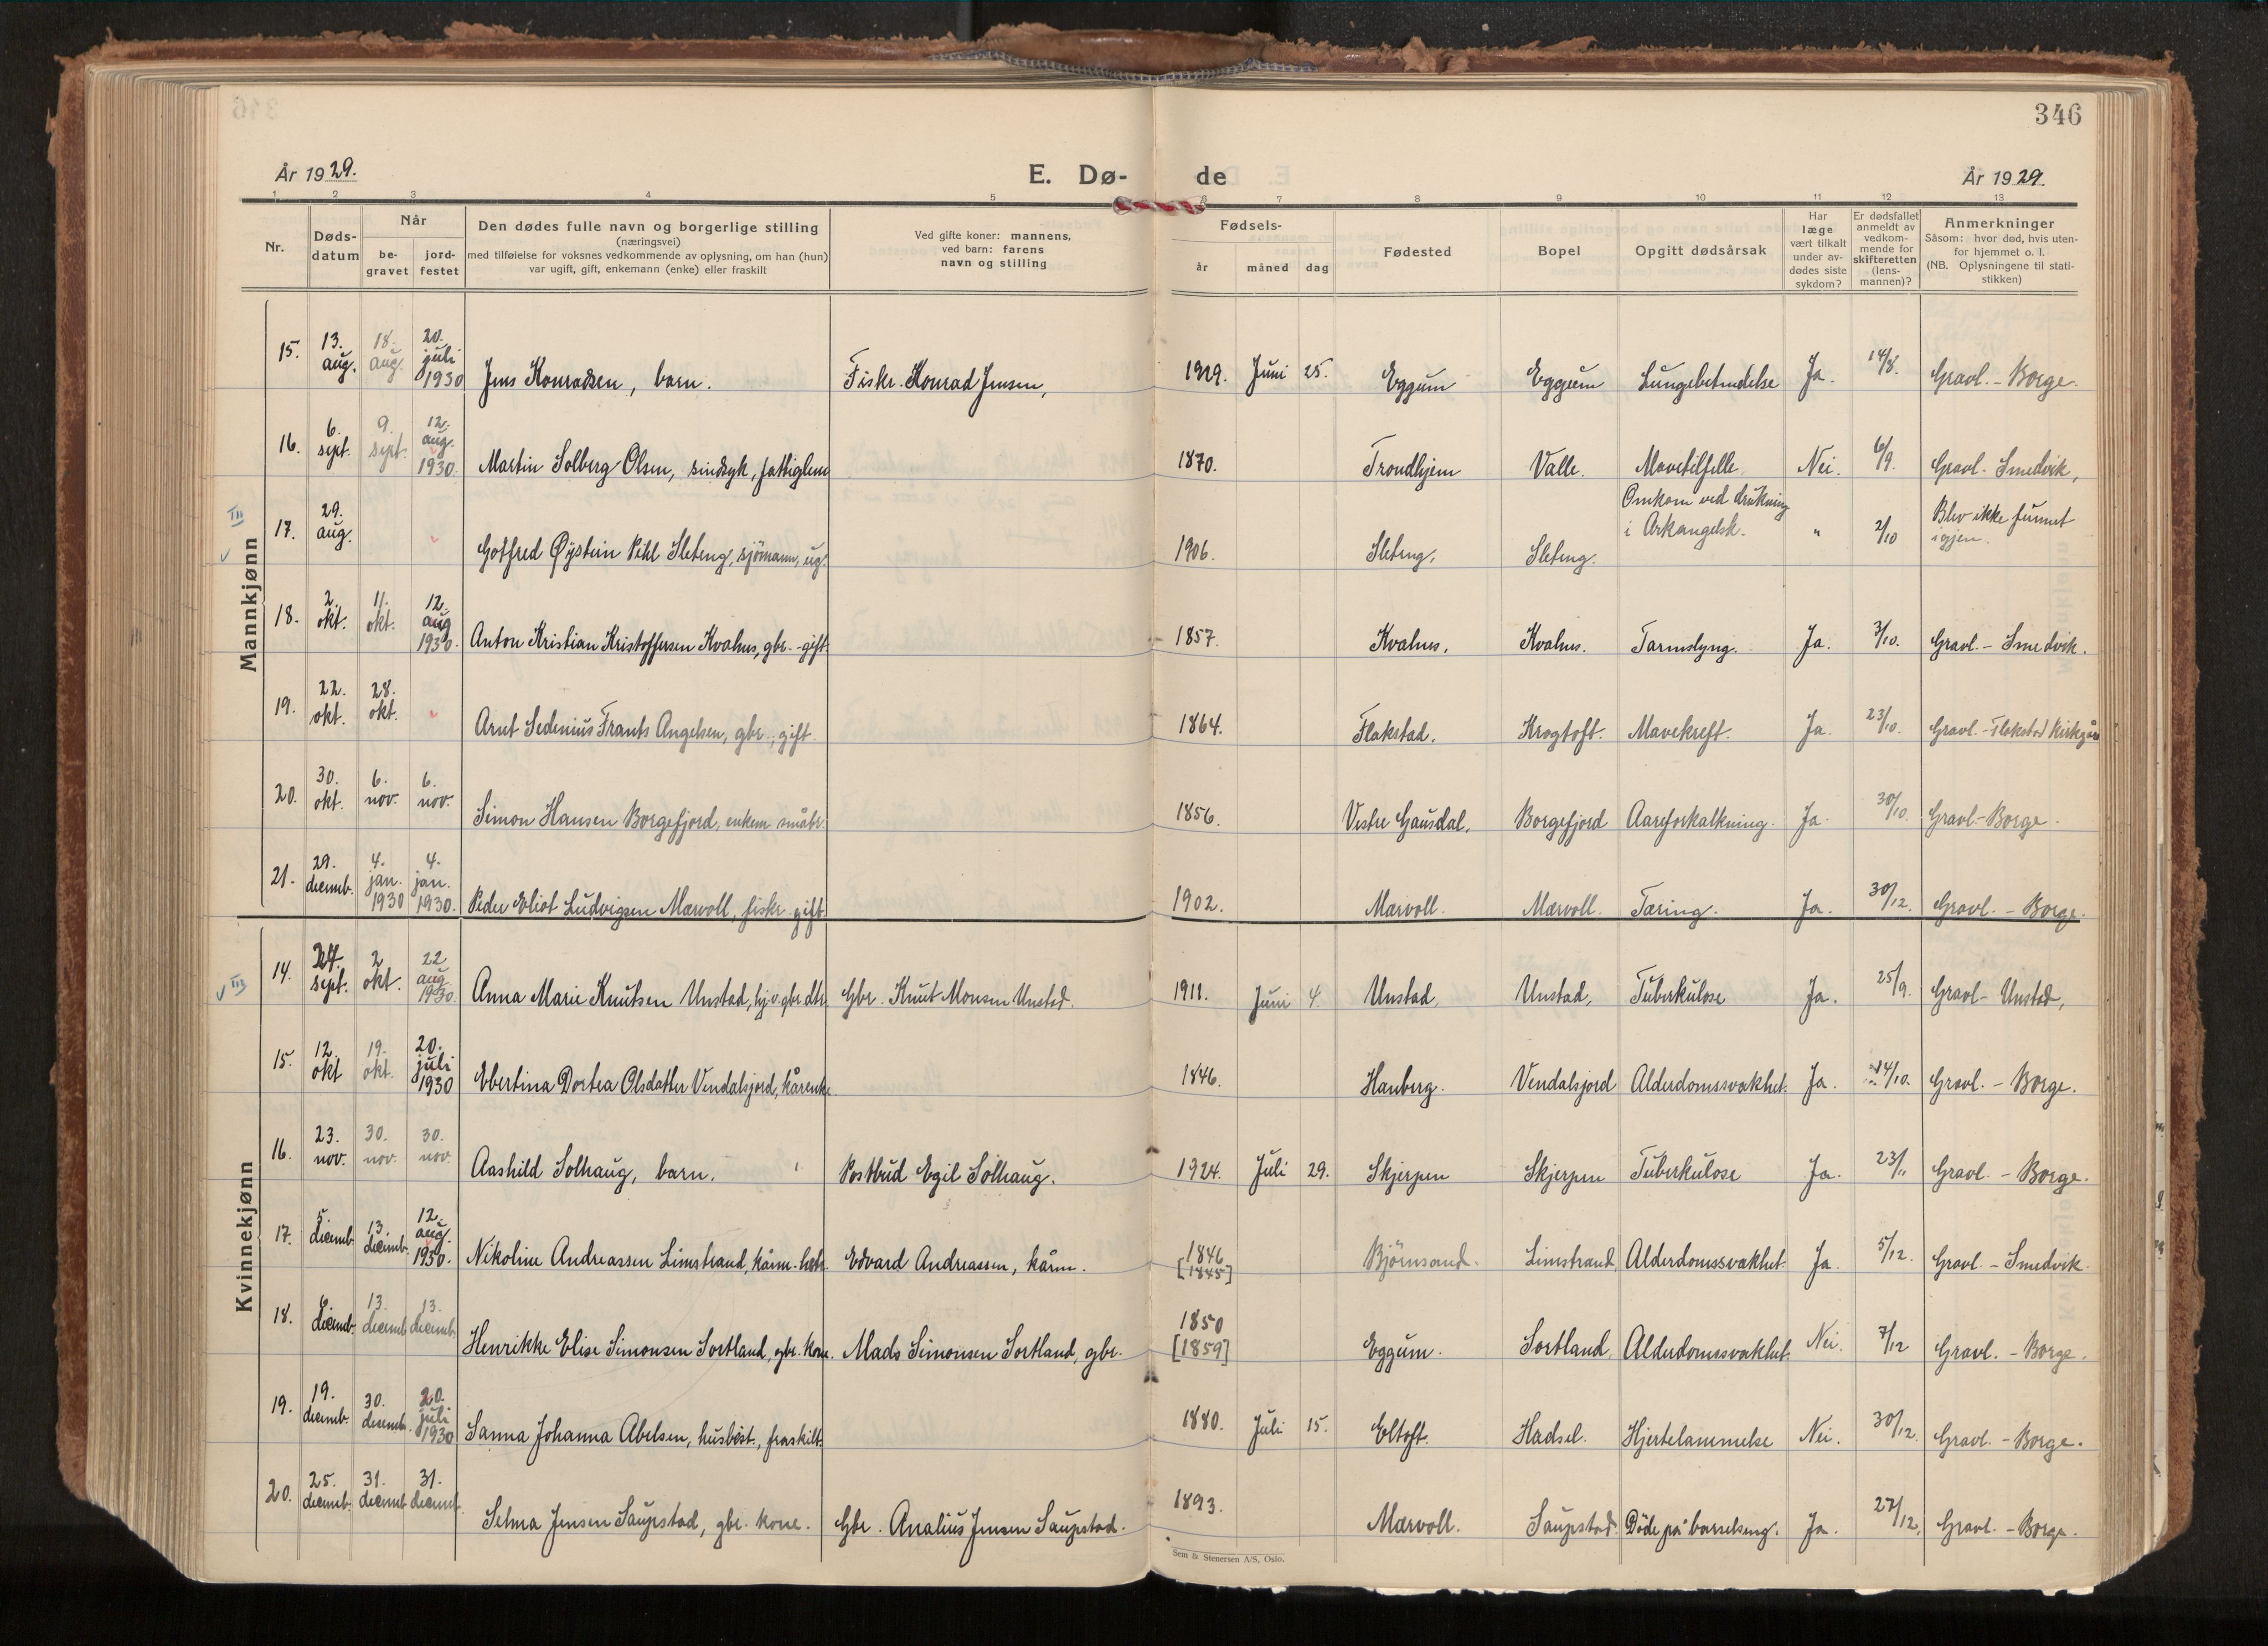 346
År 1929.
E. Dø- de
År 1929.
1 2 3 4 5 6 7 8 9 10 11 12 13
Nr.
Døds-
datum
Når
be-
gravet
jord-
festet
Den dødes fulle navn og borgerlige stilling
(næringsvei)
med tilføielse for voksnes vedkommende av oplysning, om han (hun)
var ugift, gift, enkemann (enke) eller fraskilt
Ved gifte koner: mannens,
ved barn: farens
navn og stilling
Fødsels-
år måned dag
Fødested
Bopel
Opgitt dødsårsak
Har
læge
vært tilkalt
under av-
dødes siste
sykdom?
Er dødsfallet
anmeldt av
vedkom-
mende for
skifteretten
(lens-
mannen)?
Anmerkninger
Såsom: hvor død, hvis uten-
for hjemmet o. l.
(NB. Oplysningene til stati-
stikken)
Mannkjønn
15. 13. aug. 18. aug. 20. juli 1930 Jens Konradsen, barn. Fiskr. Konrad Jensen, 1929. Juni 25. Eggum Eggum Lungebetendelse Ja. 14/8. Gravl. - Borge.
16. 6. sept. 9. sept. 12. aug. 1930. Martin Solberg Olsen, sindsyk, fattiglem 1870. Trondhjem Valle. Mavetilfelle Nei. 6/9. Gravl. - Smedvik,
17. 29. aug. Gotfred Øystein Pihl Sleteng, sjömann, ug. 1906. Sleteng, Sleteng. Omkom ved drukning i Arkangelsk. " 2/10 Blev ikke funnet igjen.
18. 2. okt. 11. okt. 12. aug 1930. Anton Kristian Kristoffersen Kvalnes, gbr. - gift. 1857. Kvalnes. Kvalnes. Tarmslyng. Ja. 3/10. Gravl. - Smedvik.
19. 22. okt. 28. okt. Arnt Sedenius Frants Angelsen, gbr., gift. 1864. Flakstad. Krogtoft. Mavekreft. Ja. 23/10. Gravl. - Flakstad kirkgår
20. 30. okt. 6. nov. 6. nov. Simon Hansen Borgefjord, enkem småbr. 1856. Vestre Gausdal. Borgefjord Aareforkalkning. Ja. 30/10. Gravl. - Borge.
21. 29. decemb. 4. jan. 1930 4. jan. 1930. Peder Eliot Ludvigsen Mærvoll, fiskr. gift 1902. Mærvoll. Mærvoll. Tæring. Ja. 30/12. Gravl. - Borge.
Kvinnekjønn
14. 24. sept. 2 okt. 22 aug 1930. Anna Marie Knutsen Unstad, hj.v. gbr.dtr. Gbr. Knut Monsen Unstad. 1911. Juni 4. Unstad, Unstad, Tuberkulose Ja. 25/9. Gravl. - Unstad,
15. 12. okt 19. okt. 20. juli 1930 Ebertina Dortea Olsdatter Vendalsjord, kårenke 1846. Hauberg. Vendalsjord Alderdomssvakhet. Ja. 14/10. Gravl. - Borge.
16. 23. nov. 30. nov. 30. nov. Aashild Solhaug, barn. Postbud Egil Solhaug. 1924. Juli 29. Skjerpen Skjerpen Tuberkulose Ja. 23/11 Gravl. - Borge.
17. 5. decemb. 13. decemb. 12. aug. 1930. Nikoline Andreassen Limstrand, kårm. hstr. Edvard Andreassen, kårm. 1846 [1845] Björnsand. Limstrand, Alderdomssvakhet. Ja. 5/12. Gravl. - Smedvik.
18. 6. decemb. 13. decemb 13. decemb. Henrikke Elise Simonsen Sortland, gbr. kone. Mads Simonsen Sortland, gbr. 1850 [1859] Eggum. Sortland, Alderdomssvakhet. Nei. 7/12 Gravl. - Borge.
19. 19. decemb. 30. decemb. 20. juli 1930 Sanna Johanna Abelsen, husbest., fraskilt. 1880. Juli 15. Eltoft. Hadsel. Hjertelammelse Nei. 30/12. Gravl. - Borge.
20. 25. decemb. 31. decemb 31. decemb. Selma Jensen Saupstad, gbr. kone. Gbr. Analius Jensen Saupstad. 1893. Mærvoll. Saupstad. Döde på barselseng. Ja. 27/12. Gravl. - Borge.
Sem & Stenersen A/S, Oslo.